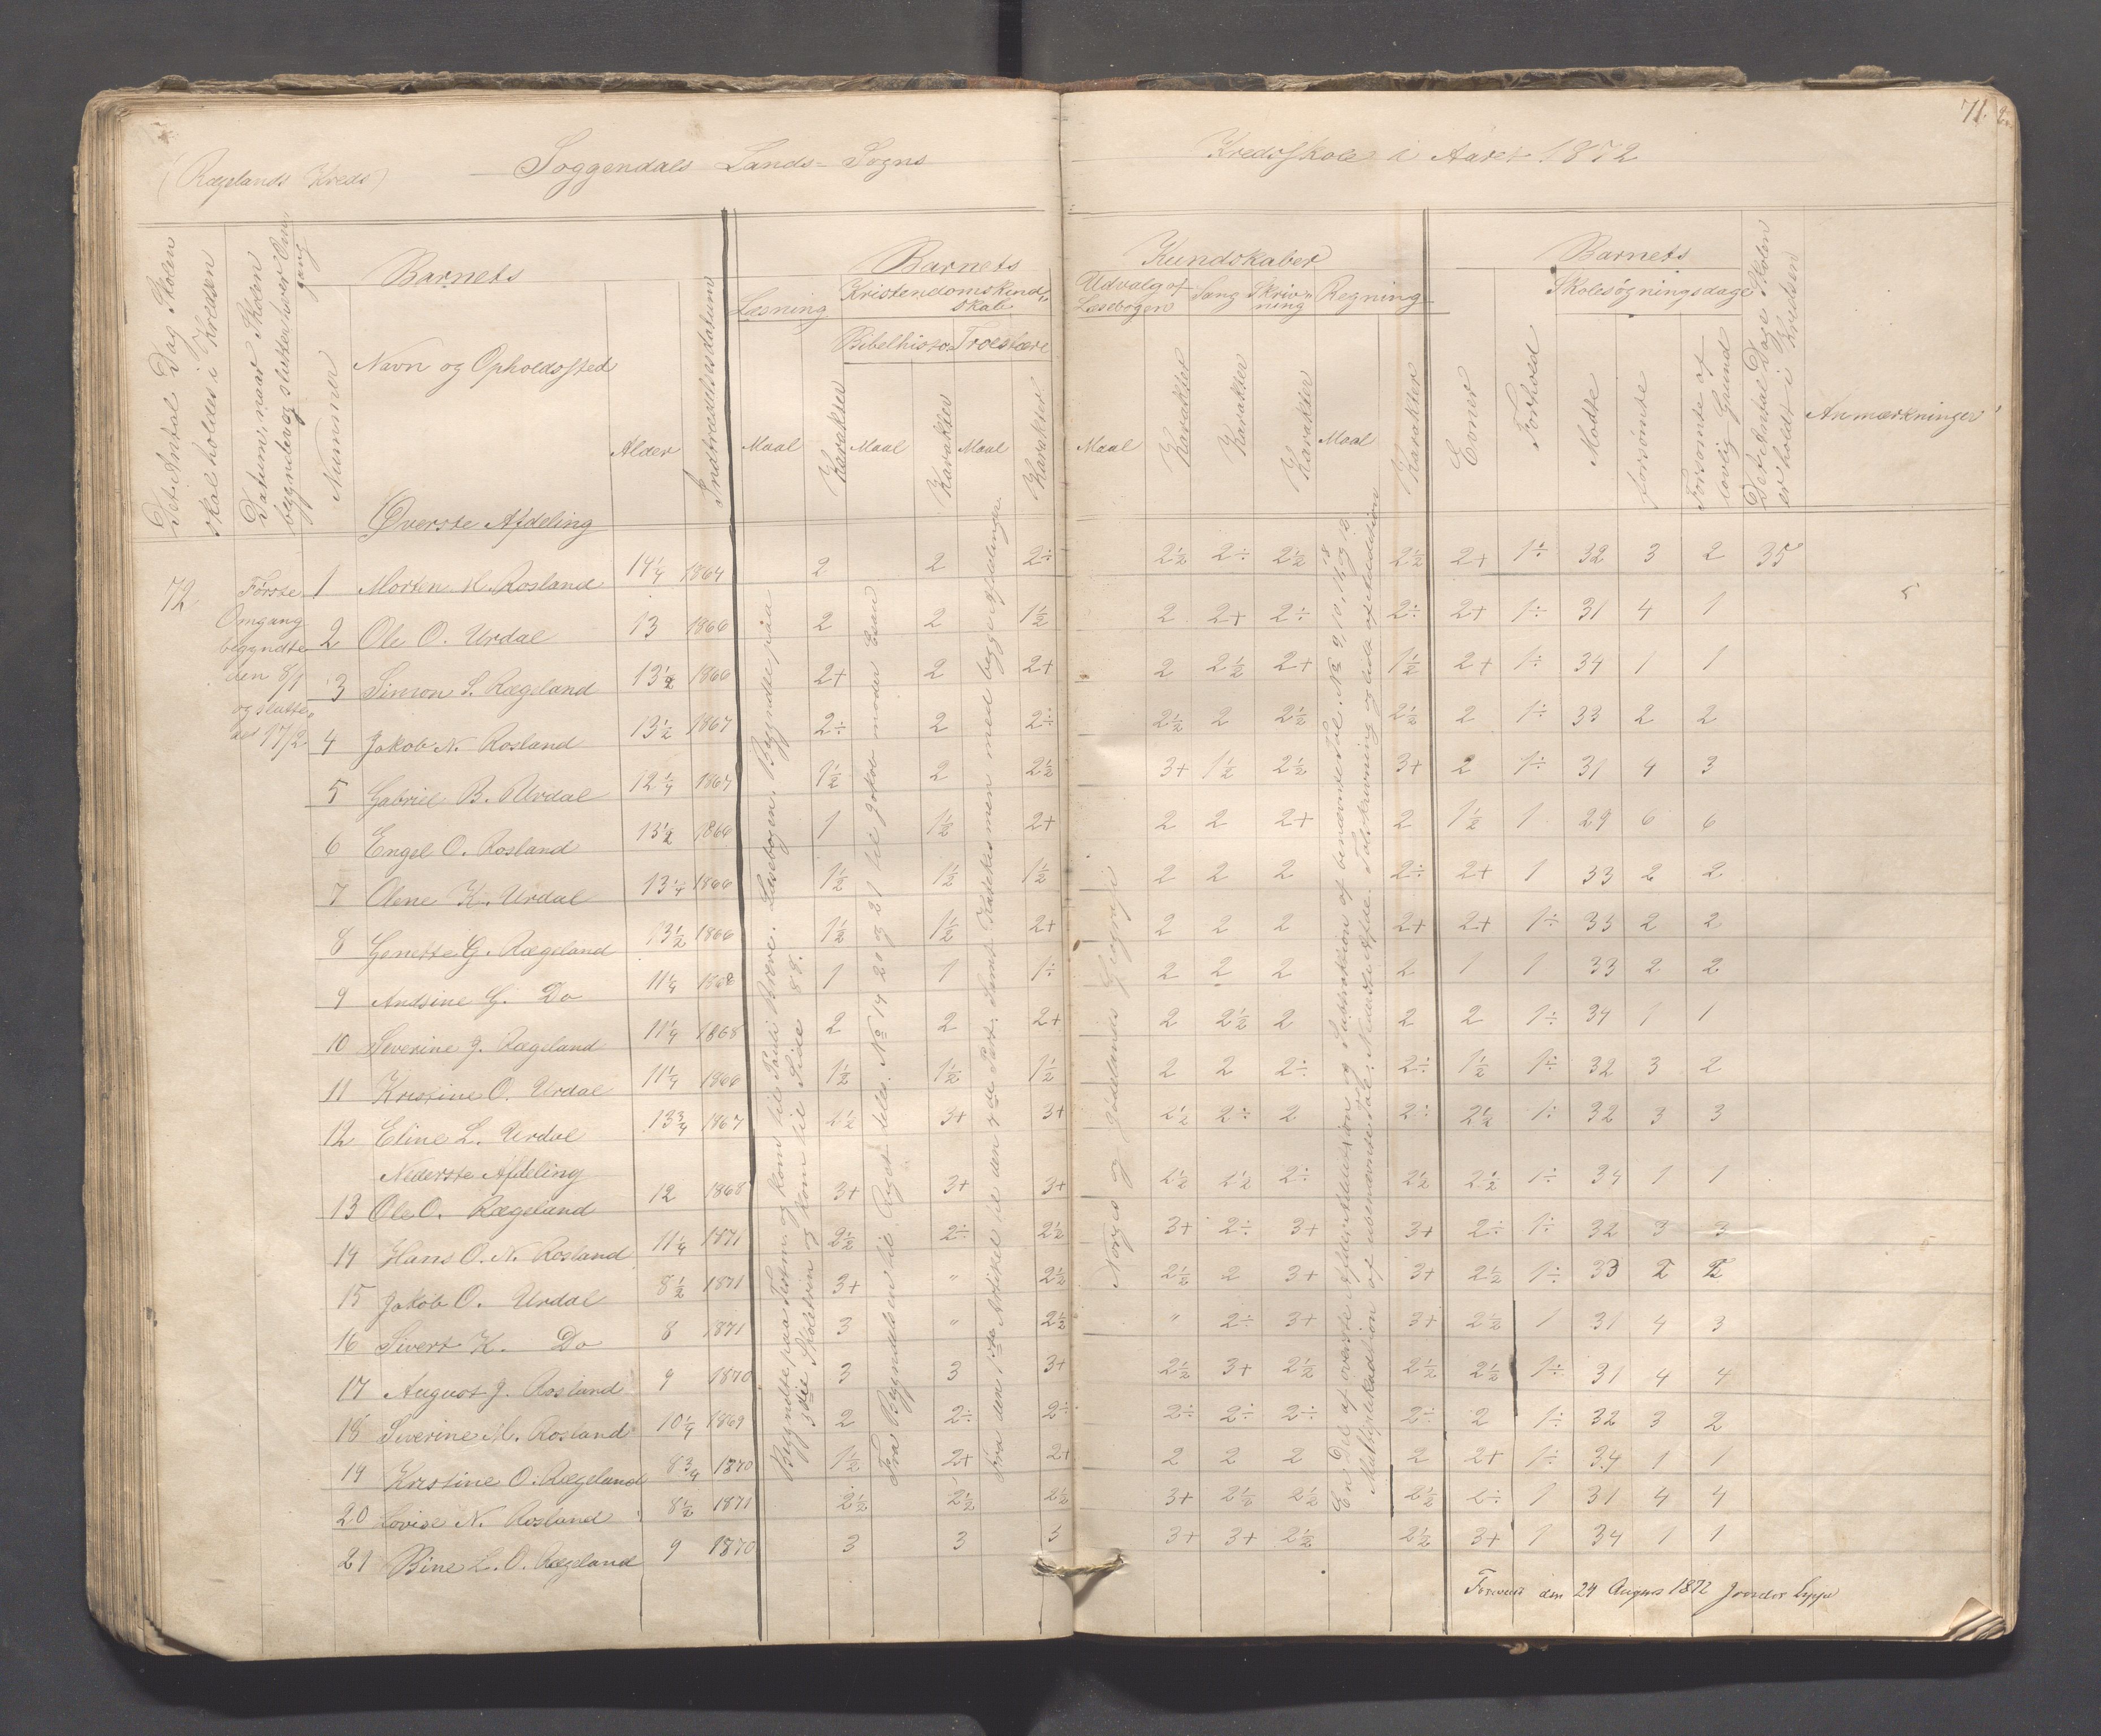 71.
(Rægelands Kreds) Soggendals Lands-Sogns Kredsskole i Aaret 1872
Det Antal Dag Skolen skal holdes i Kredsen
Datum, naar Skolen begynder og slutter hver Omgang
Barnets
Nummer
Navn og Opholdssted
Alder
Indtrædelsesdatum
Barnets Kundskaber
Læsning
Kristendomskundskab
Bibelhisto. Troeslære
Udvalg af Læsebogen
Sang
Skrivning
Regning
Maal Karakter Maal Karakter Maal Karakter
Maal Karakter Karakter Karakter Maal Karakter
Barnets
Evner
Forhold
Skolesøgningsdage
Mødte
forsømte
Forsømte af lovlig Grund
Det Antal Dage Skolen er holdt i Kredsen
Anmærkninger
Øverste Afdeling
72
Første Omgang begyndte den 8/1 og slutte det 17/2
1 Morten M. Rosland 14 1/4 1864 2 2 2÷ 2 1/2 2÷ 2 1/2 2 1/2 2+ 1÷ 32 3 2 35
2 Ole O. Urdal 13 1866 2 2 1 1/2 2 2+ 2÷ 2÷ 2+ 1÷ 31 4 1
3 Simon S. Rægeland 13 1/2 1866 2+ 2 2+ 2 2 1/2 2+ 1 1/2 2+ 1÷ 34 1 1
4 Jakob N. Rosland 13 1/2 1867 2÷ 2 2÷ 2 1/2 2 2 1/2 2 1/2 2 1÷ 33 2 2
5 Gabriel B. Urdal 12 1/4 1867 1 1/2 2 2 1/2 3+ 1 1/2 2 1/2 3+ 2 1÷ 31 4 3
6 Engel O. Rosland 13 1/2 1866 1 1 1/2 2+ 2 2 2+ 2 1 1/2 1 29 6 6
7 Olene K. Urdal 13 1/4 1866 1 1/2 1 1/2 1 1/2 2 2 2 2÷ 2+ 1 33 2 2
8 Genette G. Rægeland 13 1/2 1866 1 1/2 1 1/2 2+ 2 2 2 2+ 2+ 1÷ 33 2 2
9 Andsine G. Do 11 1/4 1868 1 1 1÷ 2 2 2 2 1 1 33 2 2
10 Severine J. Rægeland 11 1/4 1868 2 2 2+ 2 2 1/2 2 2 2 1÷ 34 1 1
11 Kristine O. Urdal 11 1/4 1866 1 1/2 1 1/2 1 1/2 2 2 2÷ 2÷ 1 1/2 1÷ 32 3 2
12 Eline L. Urdal 13 3/4 1867 2 1/2 3+ 3+ 2 1/2 2÷ 2 2÷ 2 1/2 1÷ 32 3 3
Nederste Afdeling
13 Ole O. Rægeland 12 1868 3+ 3+ 3+ 2 1/2 2 1/2 2÷ 2 1/2 2 1/2 1÷ 34 1 1
14 Hans O. N. Rosland 11 1/4 1871 2 1/2 2÷ 2 1/2 3+ 2÷ 3+ 3+ 2÷ 1÷ 32 3 3
15 Jakob O. Urdal 8 1/2 1871 3+ " 2 1/2 2 1/2 2 3+ 3+ 2 1/2 1÷ 33 2 2
16 Sivert K. Do 8 1871 3 " 2 1/2 " 2÷ 3+ 3+ 2 1/2 1 31 4 3
17 August J. Rosland 9 1870 3 3 3+ 2 1/2 3+ 2 1/2 2 1/2 2 1/2 1÷ 31 4 4
18 Siverine M. Rosland 10 1/4 1869 2 2÷ 2÷ 2÷ 2÷ 2÷ 2÷ 2 1÷ 32 3 2
19 Kristine O. Rægeland 8 3/4 1870 1 1/2 2+ 2+ 2 2 2 2 2+ 1÷ 34 1 1
20 Lovise N. Rosland 8 1/2 1871 2 1/2 2 1/2 2 1/2 3+ 2 1/2 2 1/2 2 1/2 2÷ 1 31 4 4
21 Bine L. O. Rægeland 9 1870 3 3 3 3+ 3+ 2 1/2 2 1/2 3+ 1 34 1 1
Begyndte paa Testm. og kom til Pauli Breve. Læsebogen. Begyndte paa
3die Skoletrin og kom til Side 88.
Fra Begyndelsen til Riget dels. No 14 20 og 21 til Jakob moder Esau
Fra den 1ste Artikel til den 4de Part. Smst. Katekesmen med begge Afdelinger.
Norges og Jødelands Geografi
En Del af øverste Afdel. Addition og Subtraktion af benævnte Tal. No 9, 10, 11 og 12
Multiplikation af ubenævnte Tal. Nederste Afde. Talskrivning og lidt af Addition
Foreviist den 24 August 1872